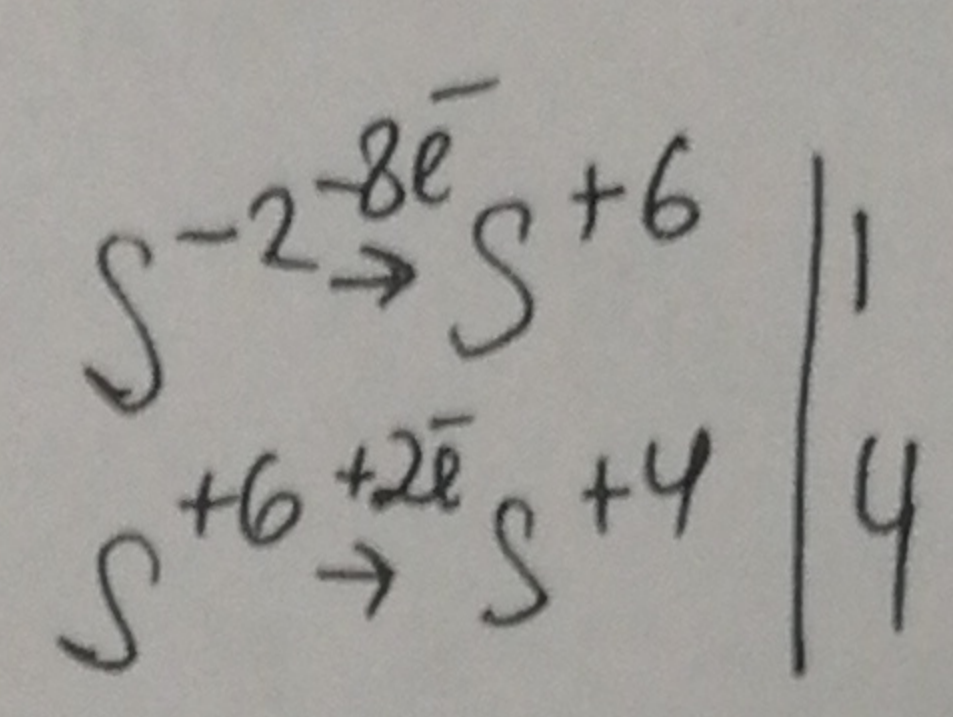 S⁻² -8ē → S⁺⁶ | 1
S⁺⁶ +2ē → S⁺⁴ | 4